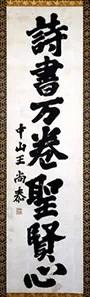 詩書万巻聖賢心
中山王尚泰